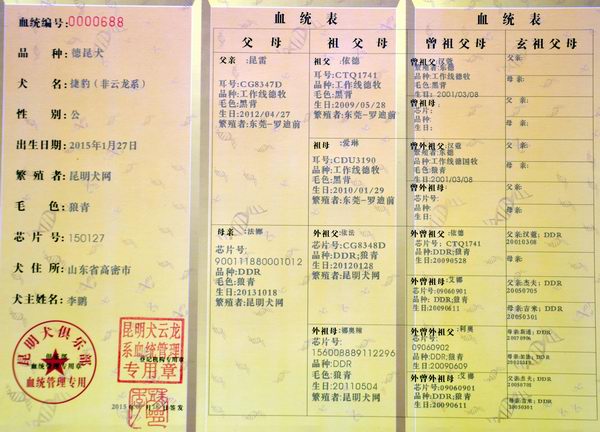 血统编号:0000688
品 种:德昆犬
犬 名:捷豹（非云龙系）
性 别:公
出生日期:2015年1月27日
繁殖者:昆明犬网
毛 色:狼青
芯片号:150127
犬住所:山东省高密市
犬主姓名:李鹏
昆明犬俱乐部
血统管理专用
昆明犬云龙
系血统管理
登记机构专用章
专用章
血统表
父母
父亲:昆雷
耳号:CG8347D
品种:工作线德牧
毛色:黑背
生日:2012/04/27
繁殖者:东莞-罗迪前
母亲:法娜
芯片号:
900111880001012
品种:DDR
毛色:狼青
生日:20131018
繁殖者:昆明犬网
祖父母
祖父:依德
耳号:CTQ1741
品种:工作线德牧
毛色:黑背
生日:2009/05/28
繁殖者:东莞-罗迪前
祖母:爱琳
耳号:CDU3190
品种:工作线德牧
毛色:黑背
生日:2010/01/29
繁殖者:东莞-罗迪前
外祖父:依法
芯片号:CG8348D
品种:DDR;狼青
生日:20120128
繁殖者:昆明犬网
外祖母:娜奥辣
芯片号:
156008889112296
品种:DDR
毛色:狼青
生日:20110504
繁殖者:昆明犬网
血统表
曾祖父母
曾祖父:汉董
繁殖者:东德
品种:工作线德牧
毛色:黑背
生日: 2001/03/08
曾祖母:
芯片:
品种:
生日:
曾外祖父:汉董
繁殖者:东德
品种:工作线德国牧
毛色:狼青
生日:2001/03/08
曾外祖母:
芯片号:
品种:
生日:
外曾祖父:依德
芯片号: CTQ1741
品种:DDR;狼青
生日:20090528
外曾祖母:艾娜
芯片号:09060901
品种:DDR;狼青
生日:20090611
外曾外祖父:阿奥
芯片号:09060902
品种:DDR;狼青
生日:20090609
外曾外祖母:艾娜
芯片号:09060901
品种:DDR;狼青
生日:20090611
玄祖父母
父亲:
母亲:
父亲:
母亲:
父亲:
母亲:
父亲:
母亲:
父亲:汉董; DDR
20010308
母亲:
父亲:杰夫;DDR
20050705
母亲:吉米;DDR
20050301
母亲:
父亲:杰夫;DDR
20050705
母亲:吉米;DDR
20050301